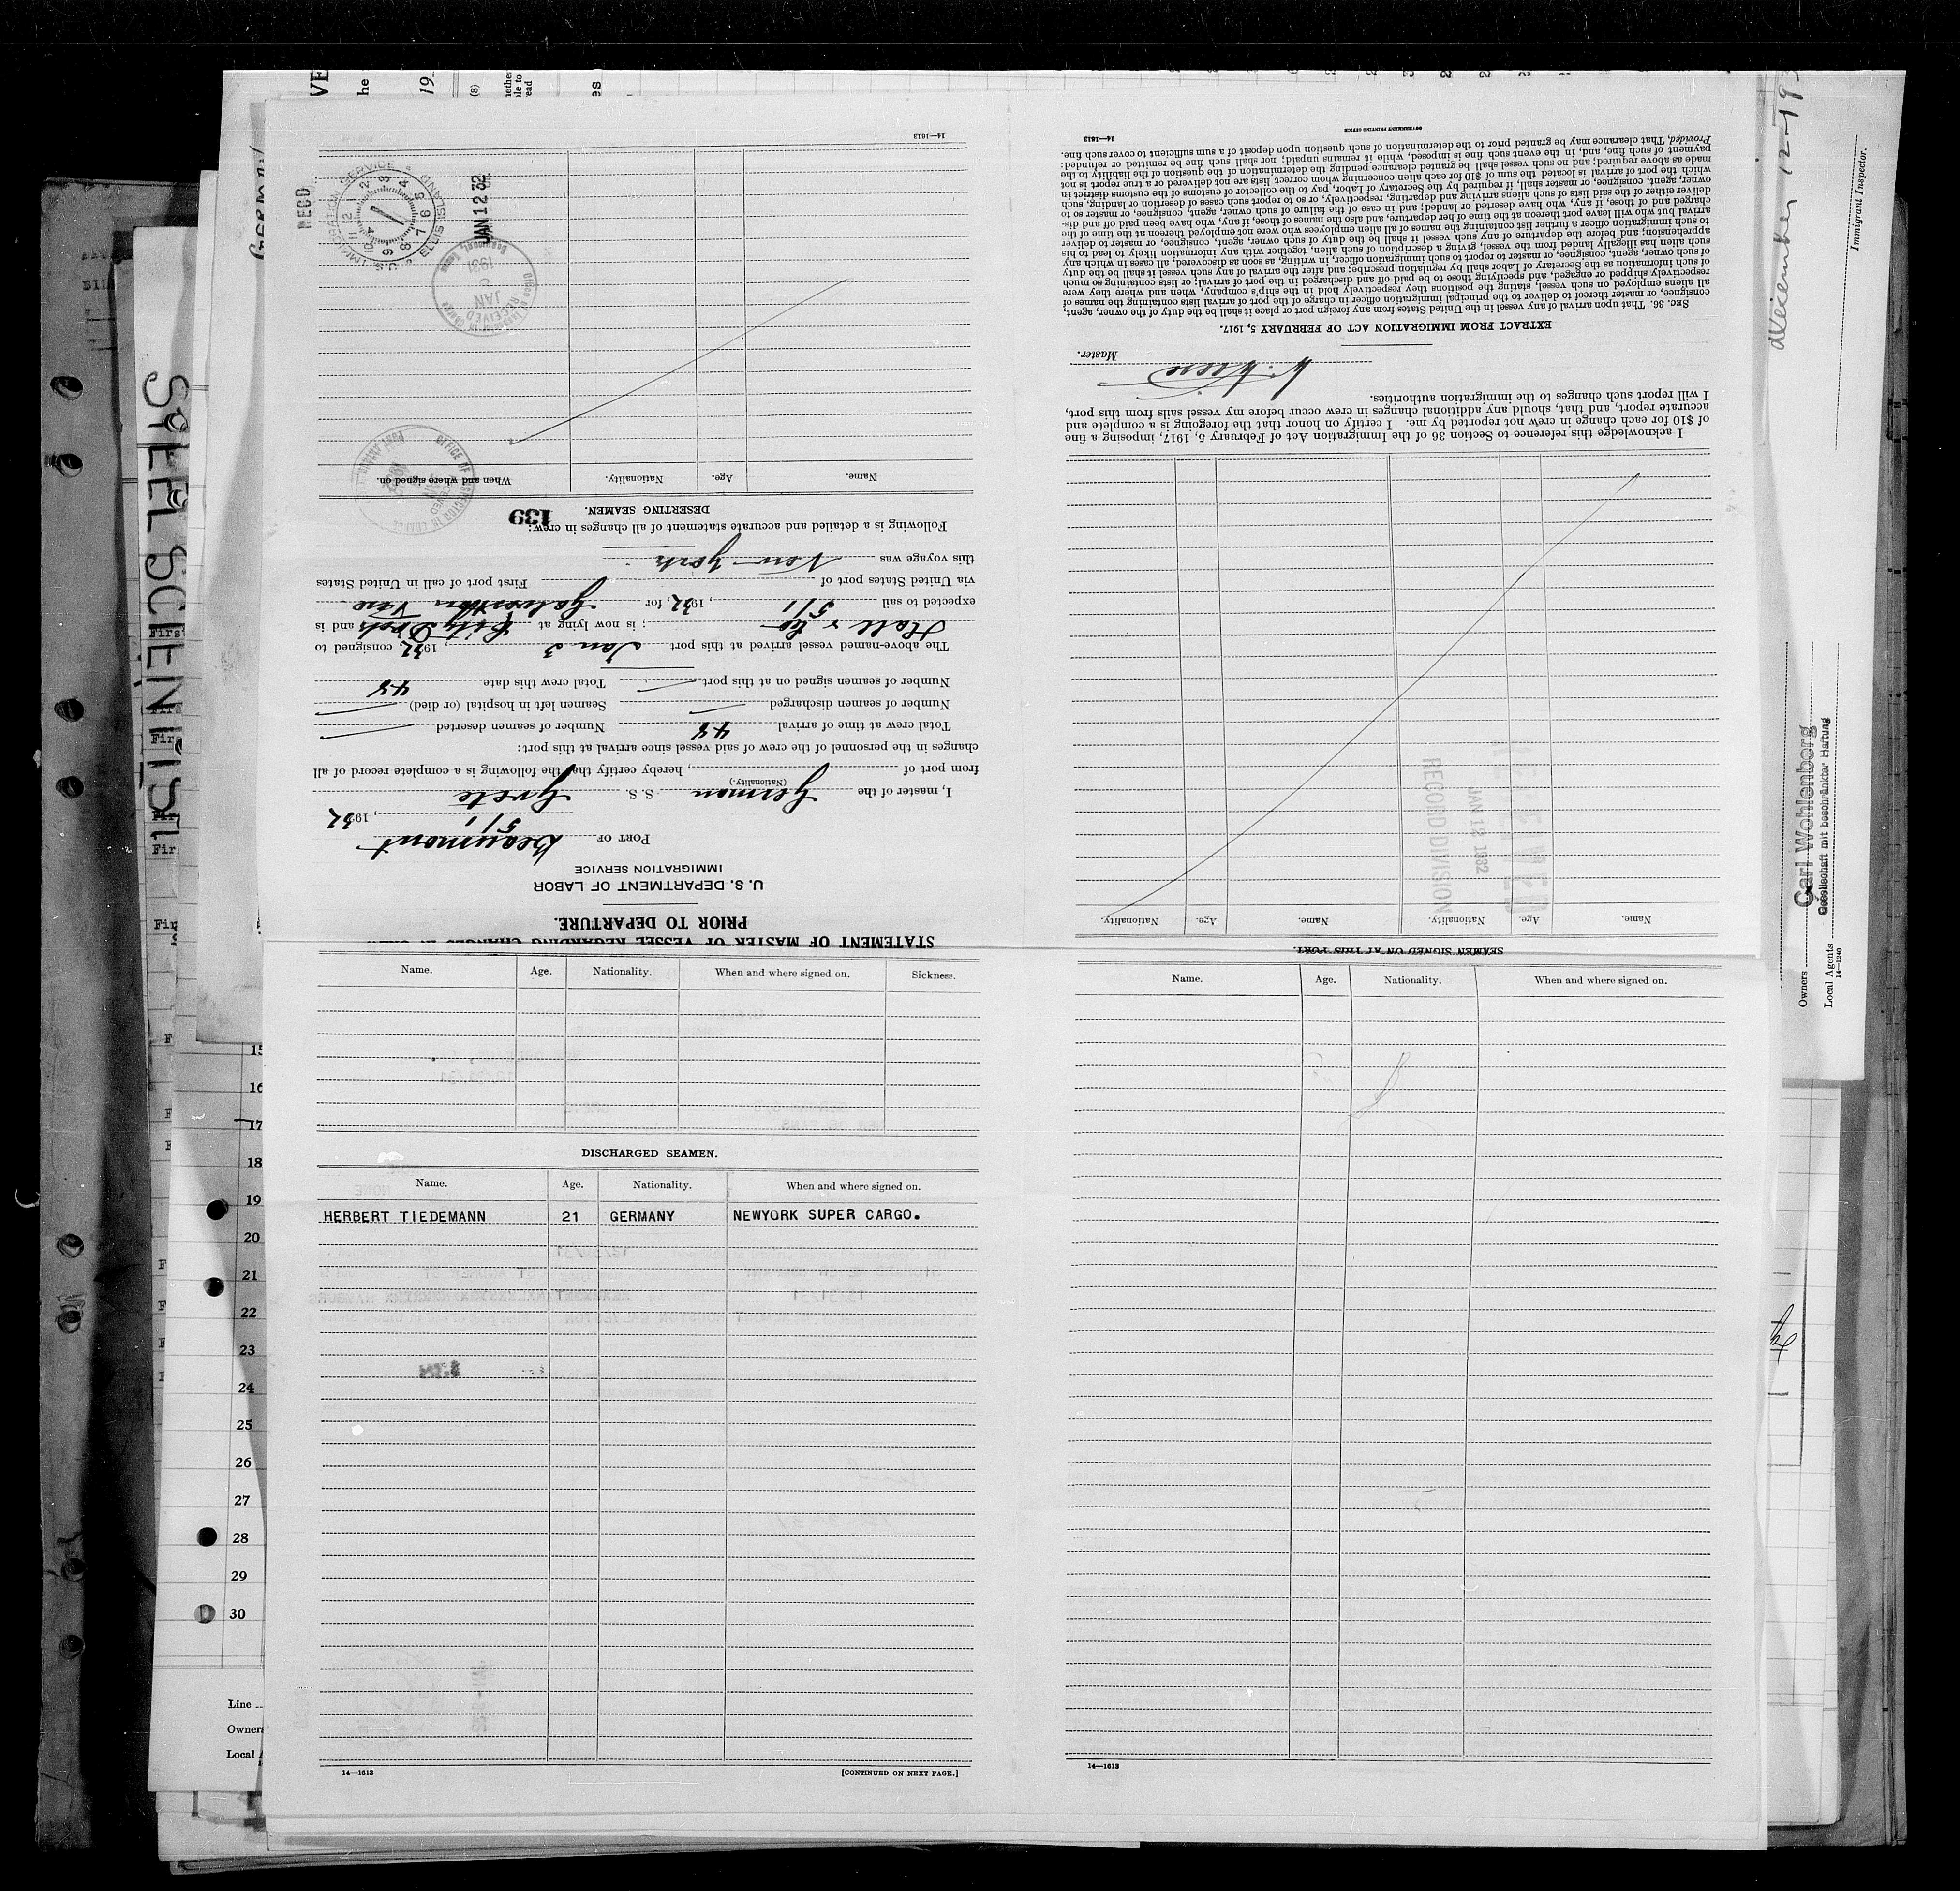 STATEMENT OF MASTER OF VESSEL REGARDING CHANGES IN
PRIOR TO DEPARTURE.
U. S. DEPARTMENT OF LABOR
IMMIGRATION SERVICE
PORT OF Beaumont
5/1, 1932
I, master of the German S. S. Grete
(Nationality.)
from port of , hereby certify that the following is a complete record of all
changes in the personnel of the crew of said vessel since arrival at this port:
Total crew at time of arrival 48 Number of seamen deserted
Number of seamen discharged Seamen left in hospital (or died)
Number of seamen signed on at this port Total crew this date 48
The above-named vessel arrived at this port Jan 3, 1932, consigned to
; is now lying at City Docks and is
expected to sail 5/1, 1932, for Galveston
via United States port of First port of call in United States
this voyage was New York
Following is a detailed and accurate statement of all changes in crew:
139
DESERTING SEAMEN.
Name. Age. Nationality. When and where signed on.
14—1613
RECD
U.S. IMMIGRATION SERVICE
ELLIS ISLAND
JAN 12 32
SEAMEN SIGNED ON AT THIS PORT.
Name. Age. Nationality. Name. Age. Nationality.
JAN 12 1932
RECORD DIVISION
I acknowledge this reference to Section 36 of the Immigration Act of February 5, 1917, imposing a fine
of $10 for each change in crew not reported by me. I certify on honor that the foregoing is a complete and
accurate report, and that, should any additional changes in crew occur before my vessel sails from this port,
I will report such changes to the immigration authorities.
Master.
EXTRACT FROM IMMIGRATION ACT OF FEBRUARY 5, 1917.
SEC. 36. That upon arrival of any vessel in the United States from any foreign port or place it shall be the duty of the owner, agent,
consignee, or master thereof to deliver to the principal immigration officer in charge of the port of arrival lists containing the names of
all aliens employed on such vessel, stating the positions they respectively hold in the ship's company, when and where they were
respectively shipped or engaged, and specifying those to be paid off and discharged in the port of arrival; or lists containing so much
of such information as the Secretary of Labor shall by regulation prescribe; and after the arrival of any such vessel it shall be the duty
of such owner, agent, consignee, or master to report to such immigration officer, in writing, as soon as discovered, all cases in which any
such alien has illegally landed from the vessel, giving a description of such alien, together with any information likely to lead to his
apprehension; and before the departure of any such vessel it shall be the duty of such owner, agent, consignee, or master to deliver
to such immigration officer a further list containing the names of all alien employees who were not employed thereon at the time of the
arrival but who will leave port thereon at the time of her departure, and also the names of those, if any, who have been paid off and dis-
charged and of those, if any, who have deserted or landed; and in case of the failure of such owner, agent, consignee, or master so to
deliver either of the said lists of such aliens arriving and departing, respectively, or so to report such cases of desertion or landing, such
owner, agent, consignee, or master shall, if required by the Secretary of Labor, pay to the collector of customs of the customs district in
which the port of arrival is located the sum of $10 for each alien concerning whom correct lists are not delivered or a true report is not
made as above required; and no such vessel shall be granted clearance pending the determination of the question of the liability to the
payment of such fine, and, in the event such fine is imposed, while it remains unpaid; nor shall such fine be remitted or refunded:
Provided, That clearance may be granted prior to the determination of such question upon deposit of a sum sufficient to cover such fine.
14—1613
GOVERNMENT PRINTING OFFICE
Name. Age. Nationality. When and where signed on. Sickness.
DISCHARGED SEAMEN.
Name. Age. Nationality. When and where signed on.
HERBERT TIEDEMANN 21 GERMANY NEWYORK SUPER CARGO.
14—1613
[CONTINUED ON NEXT PAGE.]
Name. Age. Nationality. When and where signed on.
14—1613
STEEL SCIENTIST
15
16
17
18
19
20
21
22
23
24
25
26
27
28
29
30
Line
Owners
Local
Immigrant Inspector.
Owners
Carl Wohlenborg
Gesellschaft mit beschränkter Haftung
Local Agents
14—1240